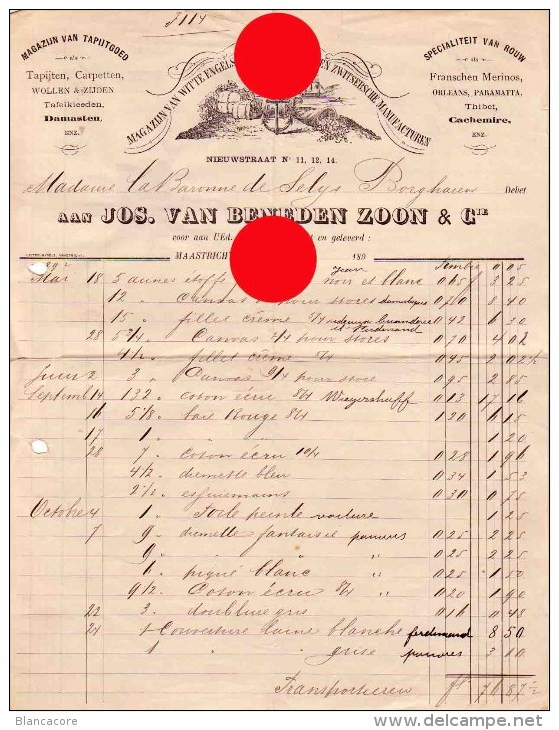 MAGAZIJN VAN TAPIJTGOED
als
Tapijten, Carpetten,
WOLLEN & ZIJDEN
Tafelkleeden,
Damasten,
ENZ.
MAGAZIJN VAN WITTE ENGELS
EN ZWITSERSCHE MANUFACTUREN
SPECIALITEIT VAN ROUW
als
Franschen Merinos,
ORLEANS, PARAMATTA,
Thibet,
Cachemire,
ENZ.
NIEUWSTRAAT No 11, 12, 14.
Madame la Baronne de Selys Borgharen Debet
AAN JOS. VAN BENEDEN ZOON & CIE
voor aan UEd. en geleverd:
MAASTRICHT 189
Timbre 0 05
Mai 18 5 aunes étoffe noir et blanc 0 65 3 25
12 " Canvas pour stores 0 70 8 40
15 " fillet crême 0 42 6 30
28 5 3/4 Canvas 9/4 pour stores 0 70 4 02
4 1/2 fillet crême 0 45 2 02 1/2
Juin 2 3 " Canvas 9/4 pour store 0 95 2 85
Septemb 14 132 " coton écru 8/4 0 13 17 16
16 5 1/8 " baie Rouge 8/4 1 20 6 15
17 1 " " 1 20
28 7 " coton écru 10/4 0 28 1 96
4 1/2 " diemette bleu 0 34 1 53
2 1/2 " essuiemains 0 30 0 75
Octobre 4 1 " Toile peinte voiture 1 25
7 9 " diemette fantaisie pauvres 0 25 2 25
9 " " " 0 25 2 25
6 " piqué blanc " 0 25 1 50
9 1/2 " Coton écru 8/4 " 0 20 1 90
22 3 " doublure gris 0 16 0 48
24 1 Couverture laine blanche ferdinand 8 50
1 " grise pauvres 3 10
Transporteeren fl 76 87 1/2
Blancacore
www.delcampe.net